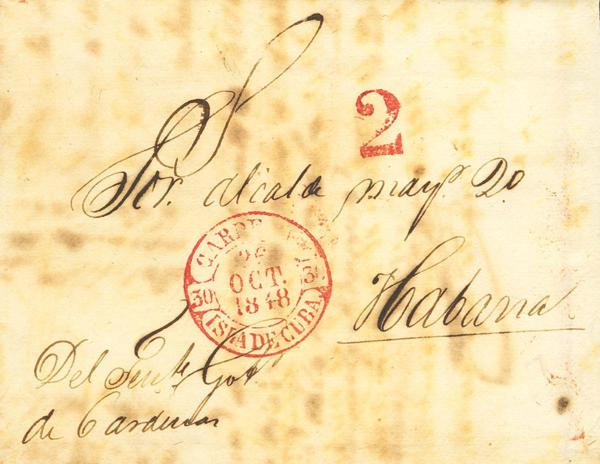 2
Sor. Alcalde mayr. 2o.
CARDE
26
OCT.
1848
30
ISLA DE CUBA
Habana
Del Tente Gobr
de Cardenas